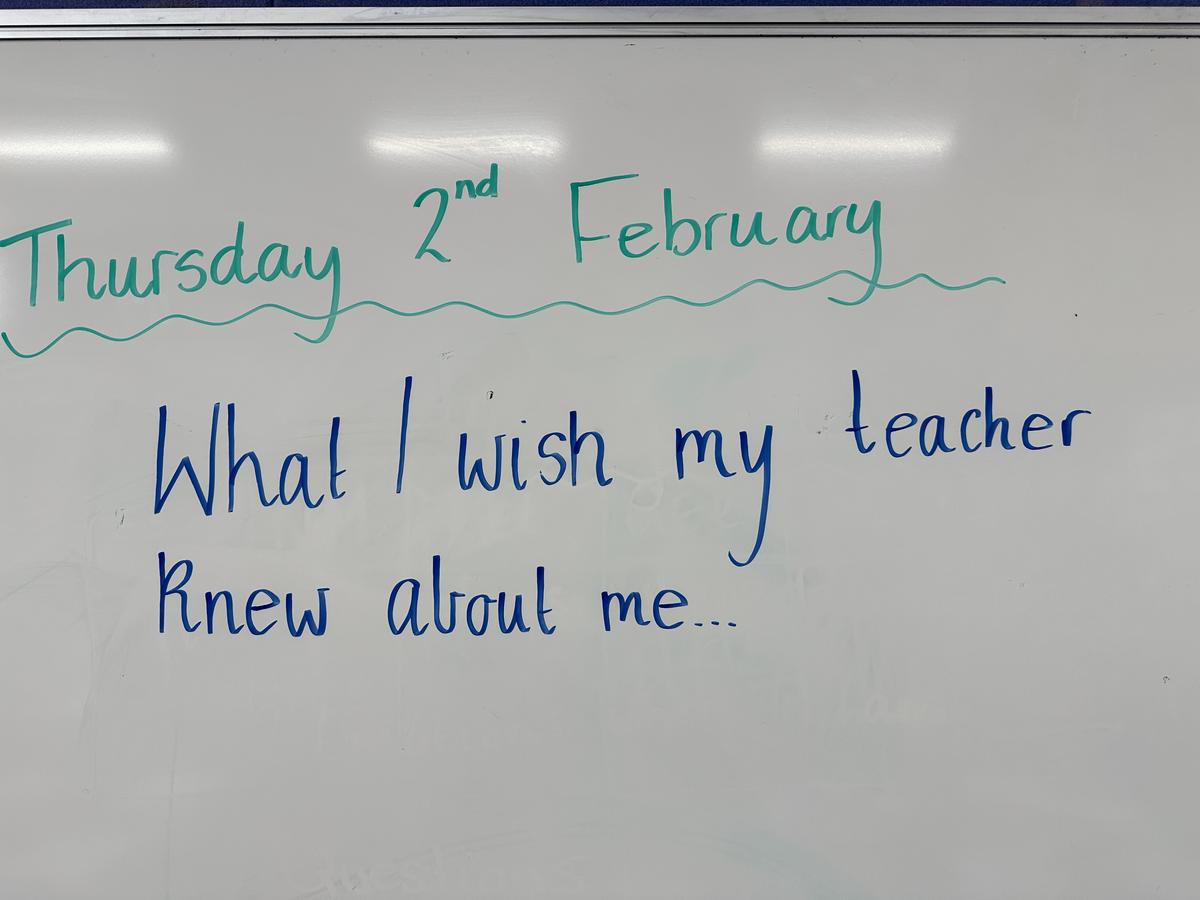 Thursday 2nd February
What I wish my teacher
Knew about me...